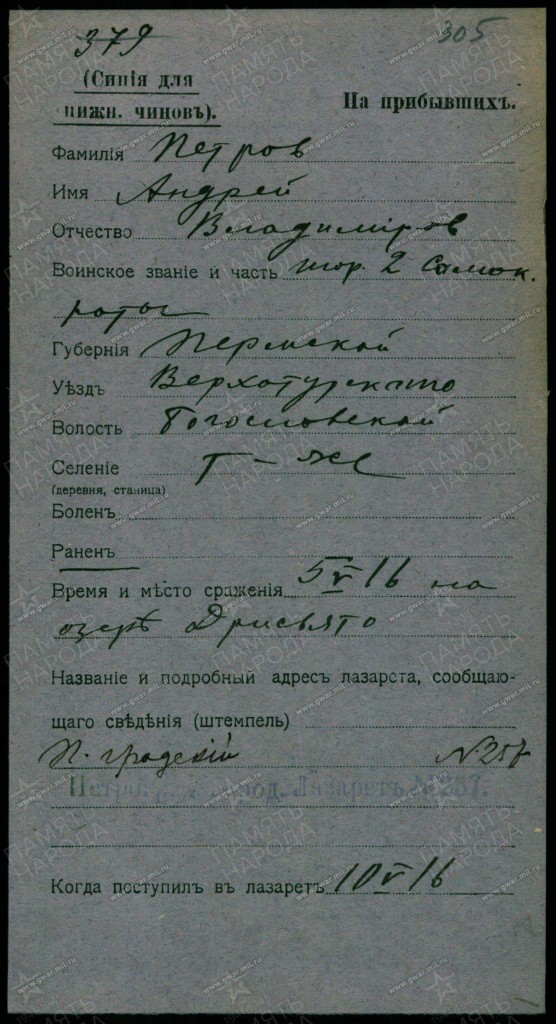 379
305
(Синія для
нижн. чиновъ).
На прибывшихъ.
Фамилія Петров
Имя Андрей
Отчество Владиміров
Воинское званіе и часть мор. 2 Самок.
роты
Губернія Пермской
Уѣздъ Верхотурскаго
Волость Богословской
Селеніе Т-же
(деревня, станица)
Боленъ
Раненъ
Время и мѣсто сраженія 5/V 16 на
озерѣ Дрисвято
Названіе и подробный адресъ лазарета, сообщаю-
щаго свѣдѣнія (штемпель)
П. градскій N 257
Когда поступилъ въ лазаретъ 10/V 16